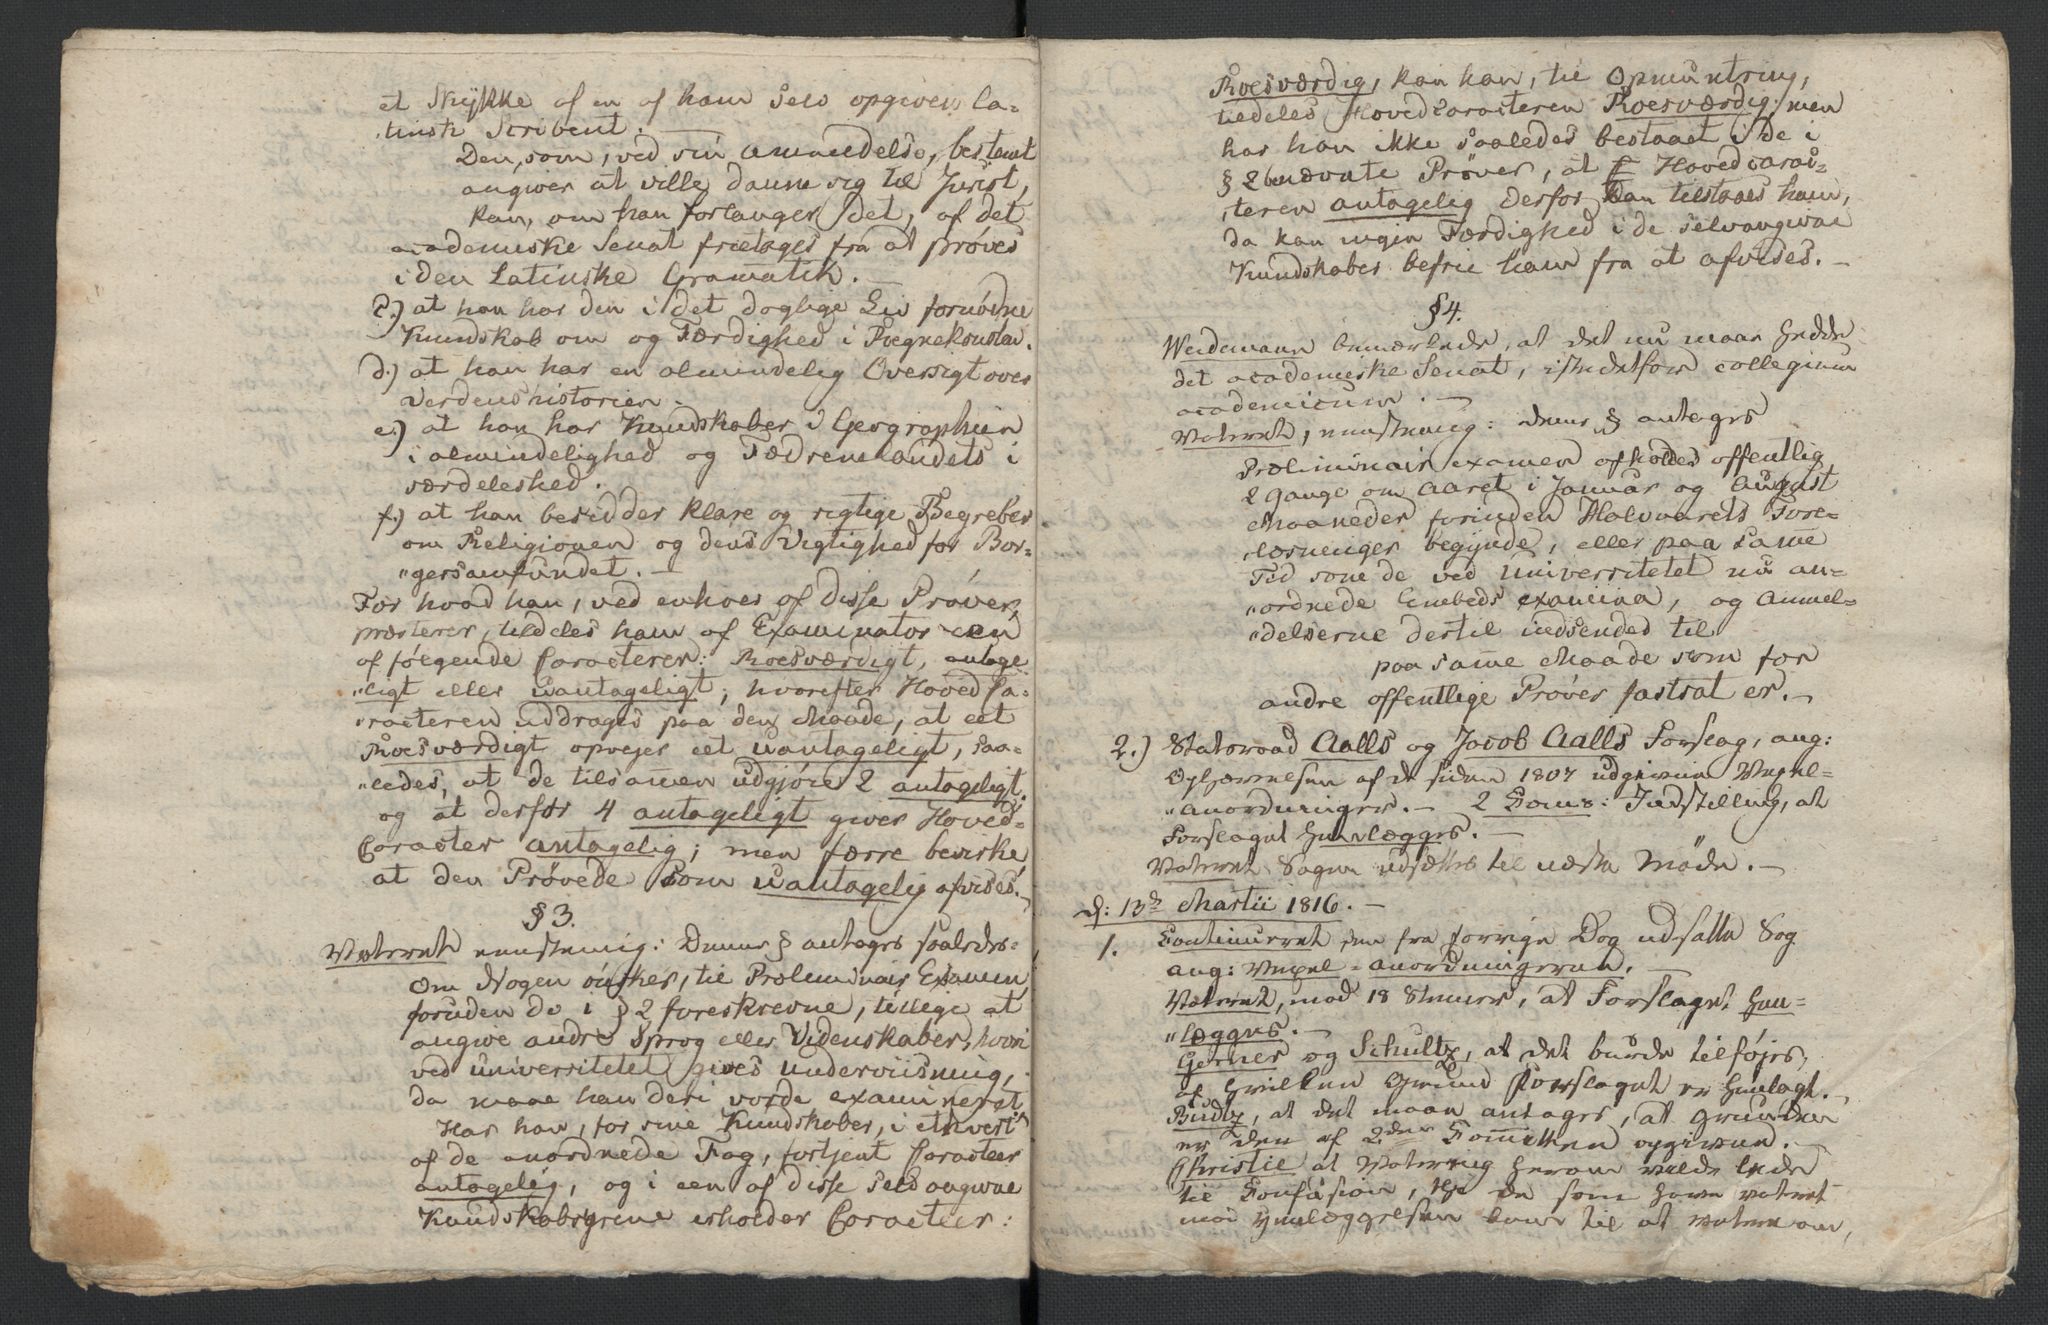 et Stykke af en af ham selv opgiven la-
tinsk Scribent.
Den, som, ved sin anmeldelse, bestemt
angiver at ville danne sig til Jurist,
kan, om han forlanger det, af det
academiske Senat frietages fra at prøves
i den Latinske Gramatik. -
c.) at han har den i det daglige Liv fornødne
Kundskab om og Færdighed i Regnekonsten.
d.) at han har en almindelig Oversigt over
Verdenshistorien.
e.) at han har Kundskaber i Geographien
i almindelighed og Fædrenelandets i
særdeleshed.
f.) at han besidder klare og rigtige Begreber
om Religionen og dens Vigtighed for Bor-
"gersamfundet. -
For hvad han, ved enhver af disse Prøver,
præsterer, tildeles ham af Examinator een
af følgende Caracterer: Roesværdigt, antage
"ligt eller uantageligt; hvorefter Hoved Ca-
racteren uddrages paa den Maade, at eet
Roesværdigt opvejer eet uantageligt, saa-
"ledes, at de tilsamen udgjøre 2 antageligt,
og at derfor 4 antageligt giver Hoved-
Caracter antagelig; men færre bevirke
at den Prøvede som uantagelig afvises.
§ 3.
Voteret eenstemig: Denne § antages saaledes:
Om Nogen ønsker, til Præliminair Examen,
foruden de i § 2 foreskrevne, tillige at
angive andre Sprog eller Videnskaber, hvori
ved Universitetet gives Underviisning,
da maae han deri vorde examineret
Har han, for sine Kundskaber, i ethvert
af de anordnede Fag, fortjent Caracteer
antagelig, og i een af disse selvangivne
Kundskabsgrene erholder Caracteer:
Roesværdig, kan han, til Opmuntring,
tildeles Hovedcaracteren Roesværdig; men
har han ikke saaledes bestaaet i de i
§ 2 benævnte Prøver, at Hovedcarac-
teren antagelig derfor kan tilstaaes ham,
da kan ingen Færdighed i de selvangivne
Kundskaber befrie ham fra at afvises. -
§ 4.
Weidemann bemærkede, at det nu maa hedde
det academiske Senat, istedetfor collegium
academicum. -
Voteret, eenstemig: denne § antages
Præliminair examen afholdes offentlig
2 Gange om Aaret i Januar og August
Maaneder forinden Halvaarets Fore-
læsninger begynde, eller paa same
Tid som de ved Universitetet nu an-
"ordnede Embeds examina, og Anmel-
"delserne dertil indsendes til
paa same Maade som for
andre offentlige Prøver fastsat er. -
2.) Statsraad Aalls og Jacob Aalls Forslag, ang:
Ophævelsen af de siden 1807 udgivne Vexel-
"anordninger. - 2 Coms: Indstilling, at
Forslaget henlægges. -
Voteret Sagen udsættes til næste Møde. -
d: 13de Martii 1816. -
1. Continueret den fra forrige Dag udsatte Sag
ang: Vexel-anordningerne. -
Voteret, mod 18 Stemmer, at Forslaget hen-
"lægges. -
Gerner og Schultz, at det burde tilføjes,
af hvilken Grund Forslaget er henlagt. -
Budtz, at det maa antages, at Grunden
er den af 2den Comitteen opgivne. -
Christie at Votering herom vilde lede
til Confusion, da de som have voteret
mod Henlæggelsen kom til at votere om,